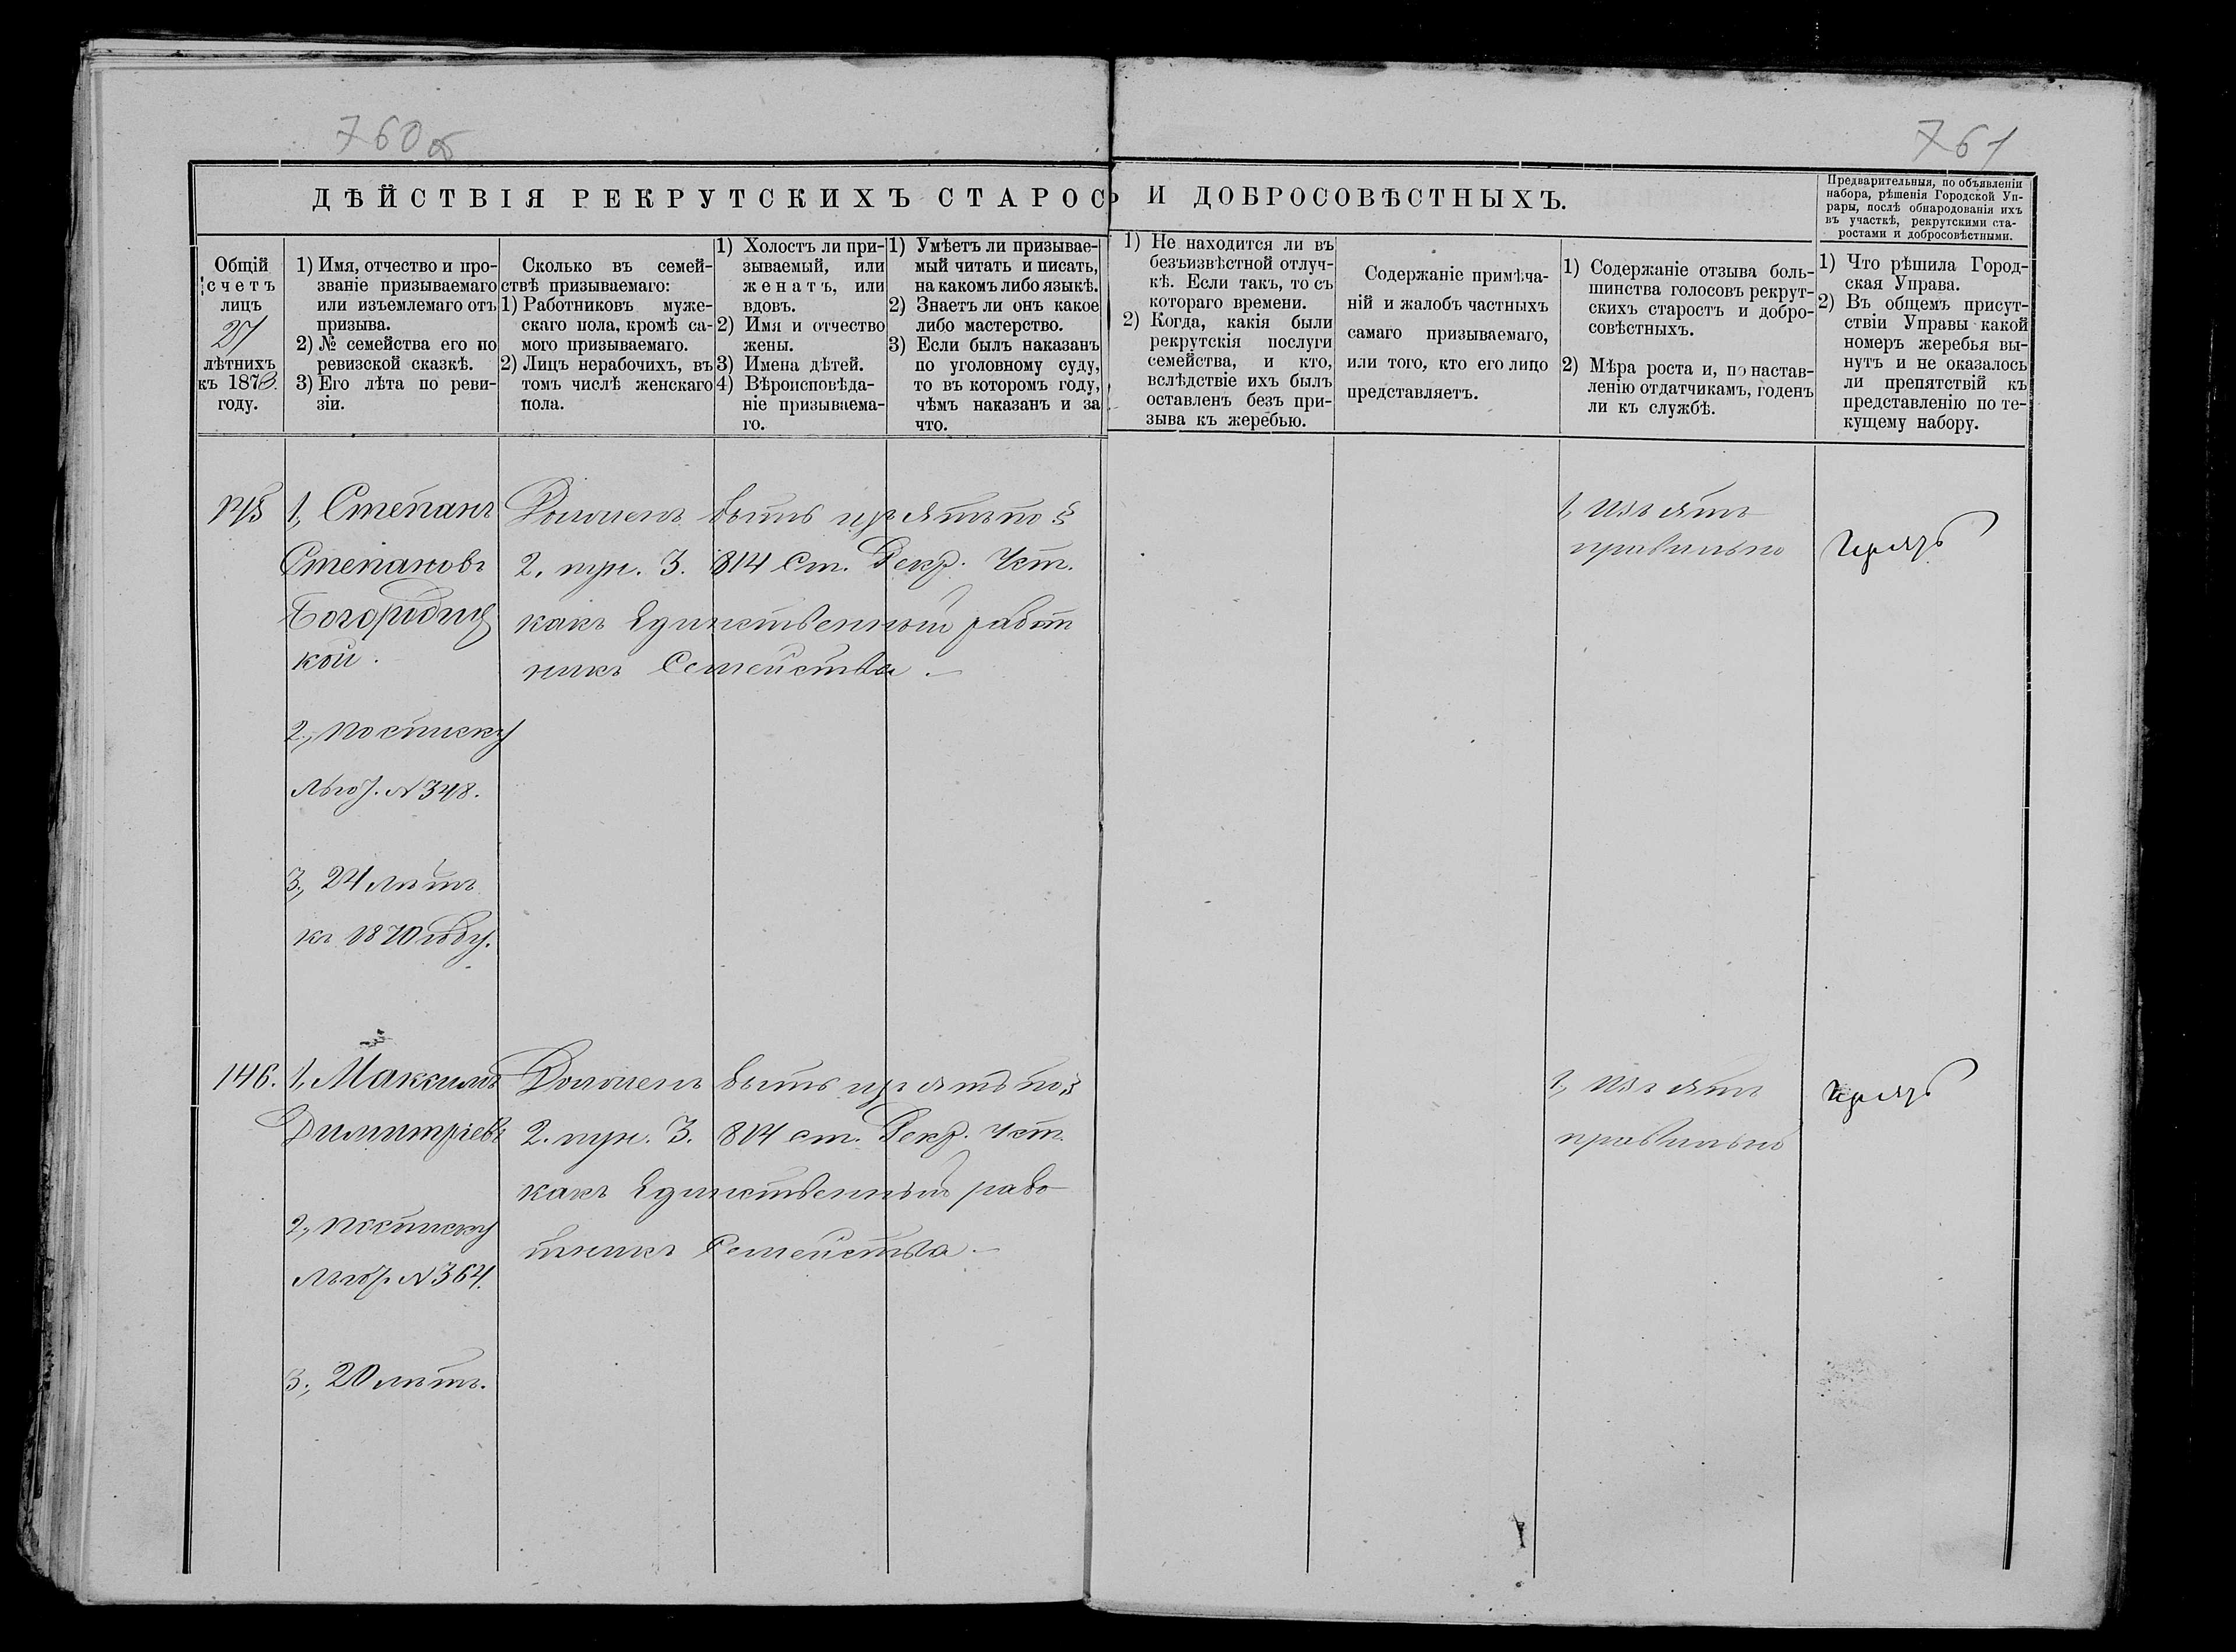 760 об
761
ДѢЙСТВІЯ РЕКРУТСКИХЪ СТАРОС
Ъ И ДОБРОСОВѢСТНЫХЪ.
Предварительныя, по объявленіи
набора, рѣшенія Городской Уп-
равы, послѣ обнародованія ихъ
въ участкѣ, рекрутскими ста-
ростами и добросовѣстными.
Общій
счетъ
лицъ
27
лѣтнихъ
къ 1873
году.
1) Имя, отчество и про-
званіе призываемаго
или изъемлемаго отъ
призыва.
2) № семейства его по
ревизской сказкѣ.
3) Его лѣта по реви-
зіи.
Сколько въ семей-
ствѣ призываемаго:
1) Работниковъ муже-
скаго пола, кромѣ са-
мого призываемаго.
2) Лицъ нерабочихъ, въ
томъ числѣ женскаго
пола.
1) Холостъ ли при-
зываемый, или
женатъ, или
вдовъ.
2) Имя и отчество
жены.
3) Имена дѣтей.
4) Вѣроисповѣда-
ніе призываема-
го.
1) Умѣетъ ли призывае-
мый читать и писать,
на какомъ либо языкѣ.
2) Знаетъ ли онъ какое
либо мастерство.
3) Если былъ наказанъ
по уголовному суду,
то въ которомъ году,
чѣмъ наказанъ и за
что.
1) Не находится ли въ
безъизвѣстной отлуч-
кѣ. Если такъ, то съ
котораго времени.
2) Когда, какія были
рекрутскія послуги
семейства, и кто,
вслѣдствіе ихъ былъ
оставленъ безъ при-
зыва къ жеребью.
Содержаніе примѣча-
ній и жалобъ частныхъ
самаго призываемаго,
или того, кто его лицо
представляетъ.
1) Содержаніе отзыва боль-
шинства голосовъ рекрут-
скихъ старостъ и добро-
совѣстныхъ.
2) Мѣра роста и, по настав-
ленію отдатчикамъ, годенъ
ли къ службѣ.
1) Что рѣшила Город-
ская Управа.
2) Въ общемъ присут-
ствіи Управы какой
номеръ жеребья вы-
нутъ и не оказалось
ли препятствій къ
представленію по те-
кущему набору.
145
1, Степанъ
Степановъ
Богородиц
кой.
2, по списку
льгот. N 348.
3, 24 лѣтъ
къ 1870 году.
Долженъ быть изъятъ по §
2. пун. 3. 814 ст. Рекр. Уст.
какъ единственный работ
никъ семейства. —
1, Изъятъ
правильно
146.
1, Максимъ
Димитріевъ
2, по списку
льгот. N 364.
3, 20 лѣтъ.
Долженъ быть изъятъ по §
2. пун. 3. 814 ст. Рекр. Уст.
какъ единственный рабо
тникъ семейства. —
1, Изъятъ
правильно